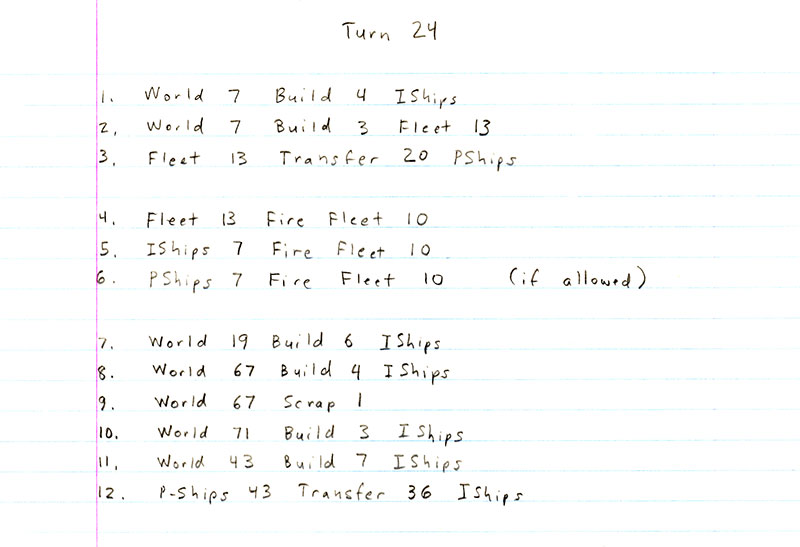 Turn 24
1. World 7 Build 4 IShips
2. World 7 Build 3 Fleet 13
3. Fleet 13 Transfer 20 PShips
4. Fleet 13 Fire Fleet 10
5. IShips 7 Fire Fleet 10
6. PShips 7 Fire Fleet 10 (if allowed)
7. World 19 Build 6 IShips
8. World 67 Build 4 IShips
9. World 67 Scrap 1
10. World 71 Build 3 IShips
11. World 43 Build 7 IShips
12. P-Ships 43 Transfer 36 IShips